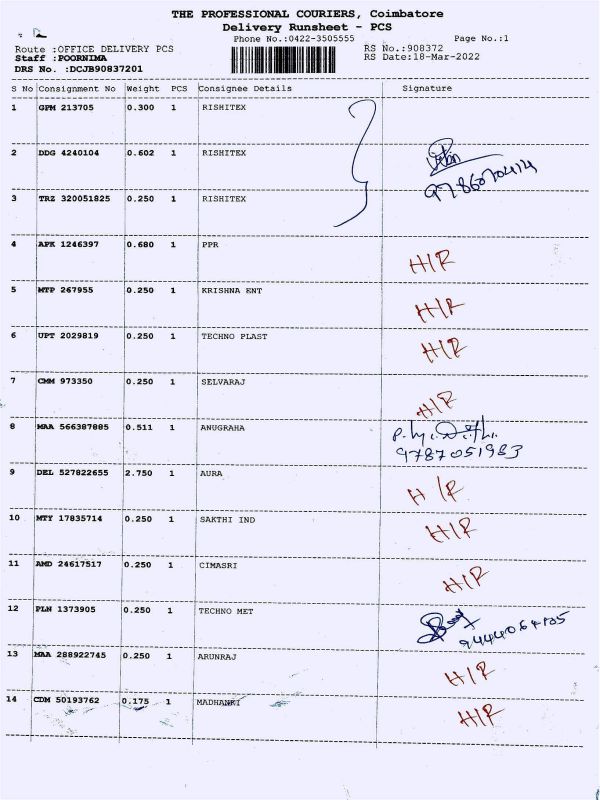 THE PROFESSIONAL COURIERS, Coimbatore
Delivery Runsheet - PCS
Phone No.:0422-3505555 Page No.:1
Route :OFFICE DELIVERY PCS RS No.:908372
Staff :POORNIMA RS Date:18-Mar-2022
DRS No. :DCJB90837201
S No Consignment No Weight PCS Consignee Details Signature
1 GPM 213705 0.300 1 RISHITEX
2 DDG 4240104 0.602 1 RISHITEX
3 TRZ 320051825 0.250 1 RISHITEX
4 APK 1246397 0.680 1 PPR H/R
5 MTP 267955 0.250 1 KRISHNA ENT H/R
6 UPT 2029819 0.250 1 TECHNO PLAST H/R
7 CMM 973350 0.250 1 SELVARAJ H/R
8 MAA 566387885 0.511 1 ANUGRAHA
9787051983
9 DEL 527822655 2.750 1 AURA H/R
10 MTY 17835714 0.250 1 SAKTHI IND H/R
11 AMD 24617517 0.250 1 CIMASRI H/R
12 PLN 1373905 0.250 1 TECHNO MET
13 MAA 288922745 0.250 1 ARUNRAJ H/R
14 CDM 50193762 0.175 1 MADHANKI H/R